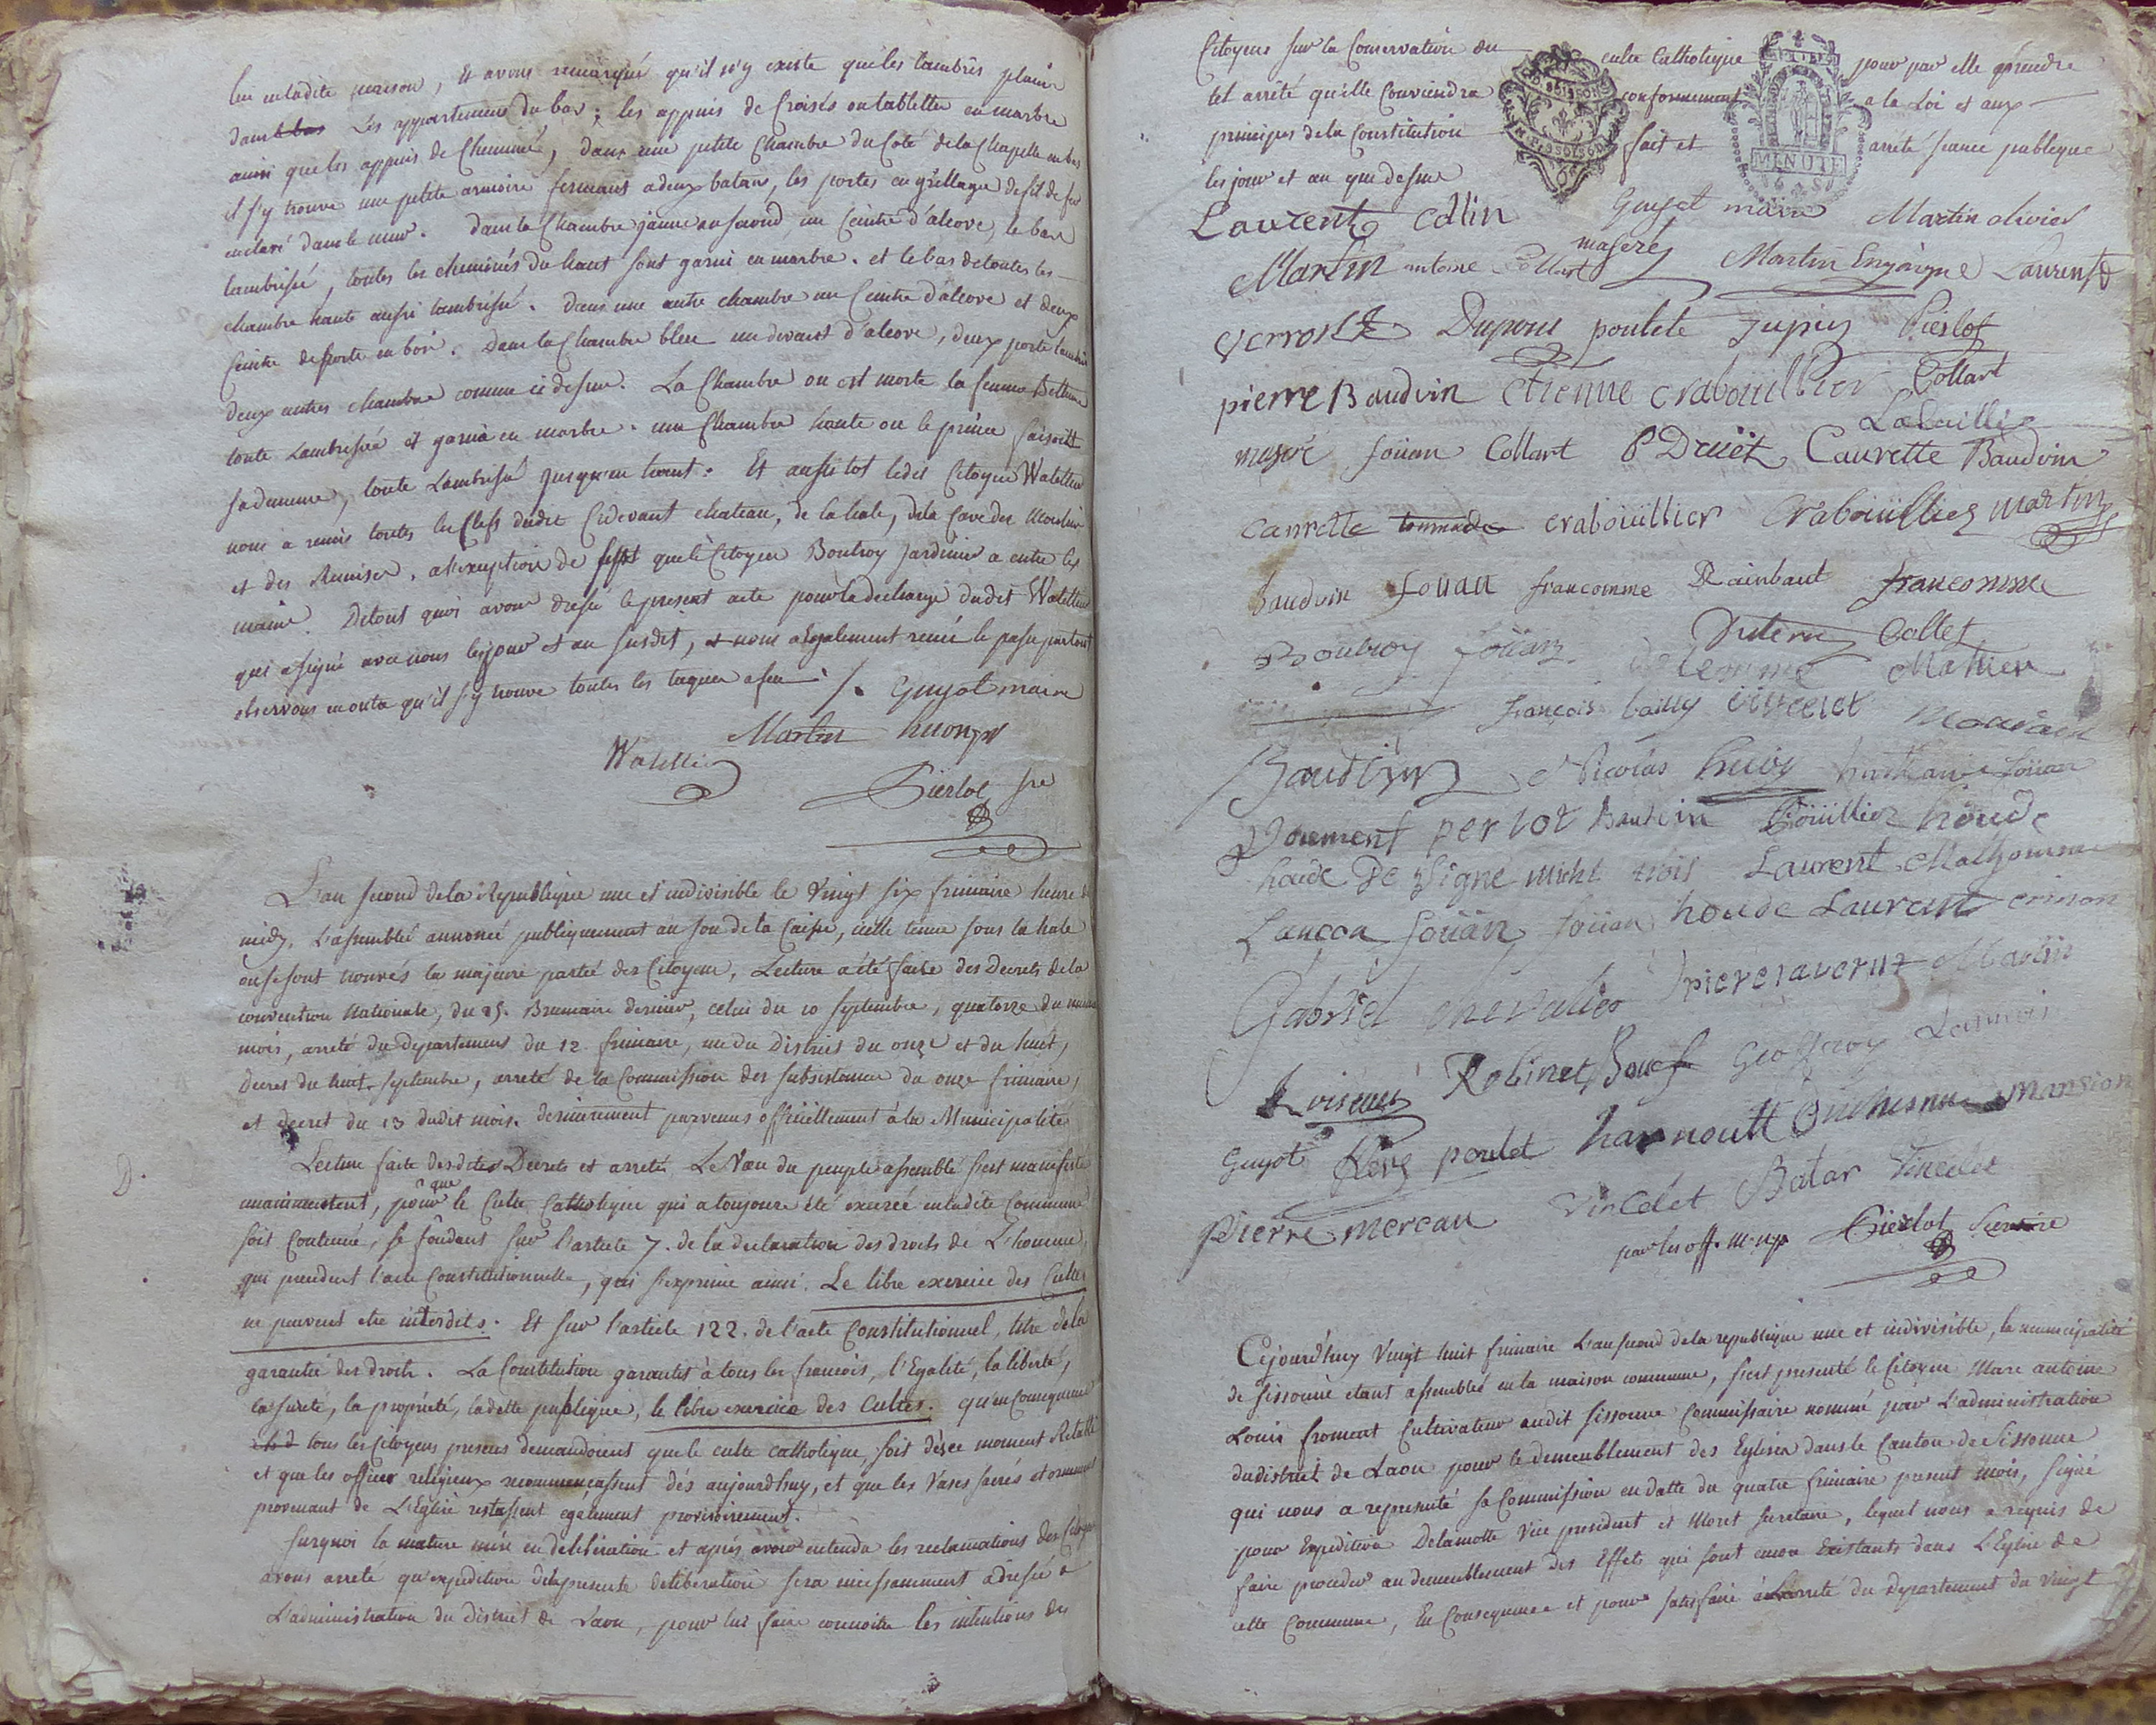 lui en ladite maison, Et avons remarqué qu'il n'y existe que les lambris plains
dans les appartemens du bas; les appuis de Croisés ou tablettes en marbre
ainsi que les appuis de Cheminé, dans une petite Chambre du Coté de la Chapelle en bas
il s'y trouve une petite armoire fermant a deux batans, les portes en grillage de fil de fer
enclavé dans le mur. dans la Chambre jaune au second, un Ceintre d'alcove, le bas
lambrissé, toutes les cheminés du haut sont garni en marbre. et le bas de toutes les
chambre haute aussi lambrissé. Dans une autre chambre un Ceintre d'alcove et deux
Ceintre de porte en bois. Dans la Chambre bleu un devant d'alcove, deux porte
deux autres chambre comme ci dessus. La Chambre ou est morte la femme Bethune
toute Lambrissée et garnie en marbre. une Chambre haute ou le prince faisoit
sa demeure, toute Lambrissé jusqu'en haut. Et aussitot ledit Citoyen Watellier
nous a remis toutes les Clefs dudit Cidevant chateau, de la hale, de la Cave des Moulin
et des Remises, a l'exception de sept que le Citoyen Boutroy jardinier a entre les
mains. De tout quoi avons dressé le present acte pour la decharge dudit Watellier
qui a signé avec nous les jour et an susdit, et nous a egalement remi le passe partout
observons en outre qu'il s'y trouve toutes les taques a feu. /. Guyot maire
Martin huon
Watellier
Pierlot
L'an second de la Republique une et indivisible le Vingt six frimaire heure de
midy, L'assemblée annoncé publiquement au son de la Caisse, icelle tenue sous la hale
ou se sont trouvés la majeure partie des Citoyens, Lecture a été faite des Decrets de la
convention Nationale, du 25. Brumaire dernier, celui du 10 septembre, quatorze du même
mois, arreté du departement du 12 frimaire, un du District du onze et du huit,
Decret du huit septembre, arreté de la Commission des subsistances du onze frimaire,
et decret du 13 dudit mois. dernierement parvenus officiellement à la Municipalité
D. Lecture faite desdites Decrets et arretés Le Vœu du peuple assemblé s'est manifesté
unanimement, pour que le Culte Catholique qui a toujours été exercée en ladite Commune
soit Continué, se fondant sur l'article 7. de la declaration des droits de L'homme,
qui precedent l'acte Constitutionnelle, qui s'exprime ainsi. Le libre exercice des Cultes
ne peuvent etre interdits. Et sur l'article 122. de l'acte Constitutionnel, titre de la
garantie des droits. La Constitution garantit à tous les francois, l'Egalité, la liberté,
la sureté, la propriété, la dette publique, le libre exercice des Cultes. qu'en Consequence
tous les Citoyens presens demandoient que le culte catholique, soit dès ce moment Retabli
et que les offices religieux recommençassent dès aujourdhuy, et que les Vases sacrés et ornemens
provenant de L'Eglise restassent egalement provisoirement.
Surquoi la matiere mise en deliberation et après avoir entendu les reclamations des Citoyens
avons arreté qu'expedition de la presente deliberation sera incessamment adressée a
L'administration du District de Laon, pour lui faire connoitre les intentions des
Citoyens sur la Conservation du culte Catholique pour par elle prendre
tel arrêté qu'elle Conviendra conformement a la Loi et aux
principes de la Constitution fait et arrêté seance publique
les jour et an que dessus
MINUTE
Laurent Collin Guyot maire Martin olivier
Martin antoine Collart maseré Martin Laurent
Dupons poulete Jupin Pierlot
pierre Baudvin Etienne Crabouillier Collart
Lalaillier
maseré foüan Collart P Drüet Caurette Baudvin
Caurette crabouillier Crabouillier martin
baudvin foüan francomme Rainbaut francomme
Boutroy foüan Collet
Delomme Mahieu
françois bailly vincelet
Baudvin Nicolas huin foüan
perlot Baudvin houde
houde De signe Laurent Malhomme
Lançon foüan foüan houde Laurent
Gabriel chevalier piere Martin
Robinet Geoffroy
Guyot poulet harnoult Duchesne mansion
pierre mereau Vincelet Batar Vincelet
par les off. m.up. Pierlot
Cejourd'huy Vingt huit frimaire L'an second de la republique une et indivisible, la municipalité
de Sissonne etant assemblée en la maison commune, s'est presenté le Citoyen Marc antoine
Louis froment Cultivateur audit Sissonne Commissaire nommé par L'administration
du district de Laon pour le demeublement des Eglises dans le Canton de Sissonne
qui nous a representé sa Commission en datte du quatre frimaire present mois, signé
pour Expedition Delamotte Vice president et Moret secretaire, lequel nous a requis de
faire proceder au demeublement des Effets qui sont encor Existants dans L'Eglise de
cette Commune, En Consequence et pour satisfaire à L'arrêté du departement du Vingt